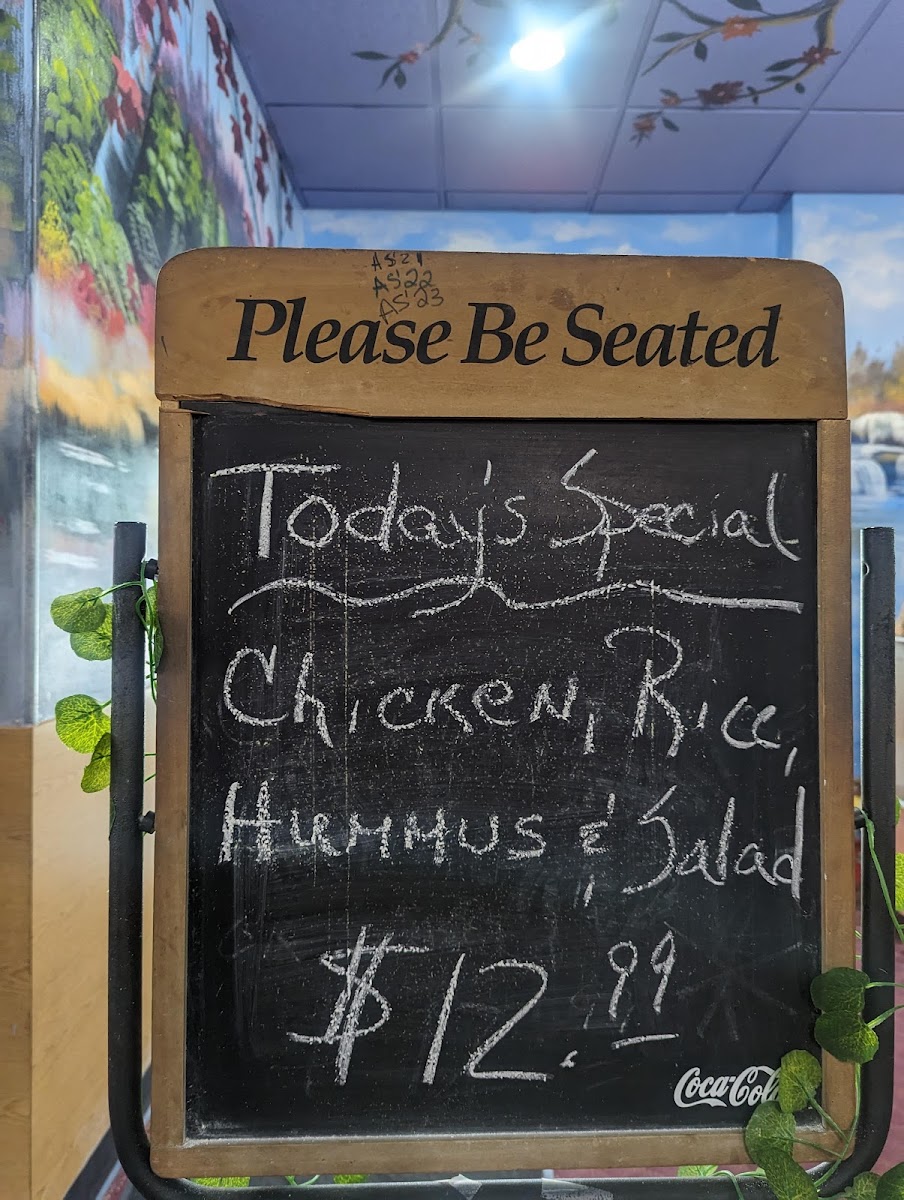 AS21
AS'22
AS'23
Please Be Seated
Today's Special
Chicken, Rice,
Hummus & Salad
$12.99
Coca-Cola